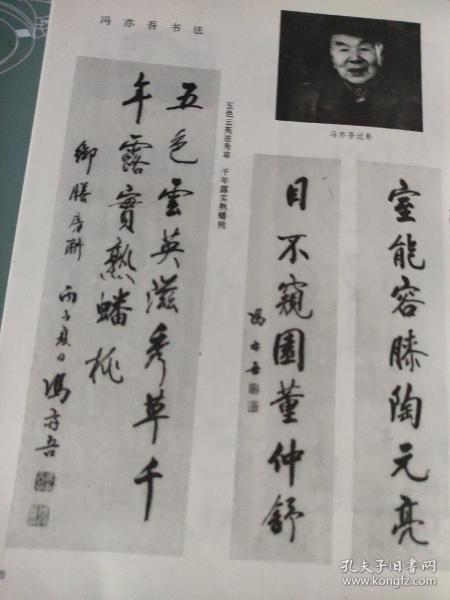 冯亦吾书法
冯亦吾近影
五色云英滋秀草 千年露实熟蟠桃
五色雲英滋秀草千
年露實熟蟠桃
御膳房聯 丙子夏日 馮亦吾
室能容膝陶元亮
目不窺園董仲舒
馮亦吾
孔夫子旧书网
www.kongfz.com